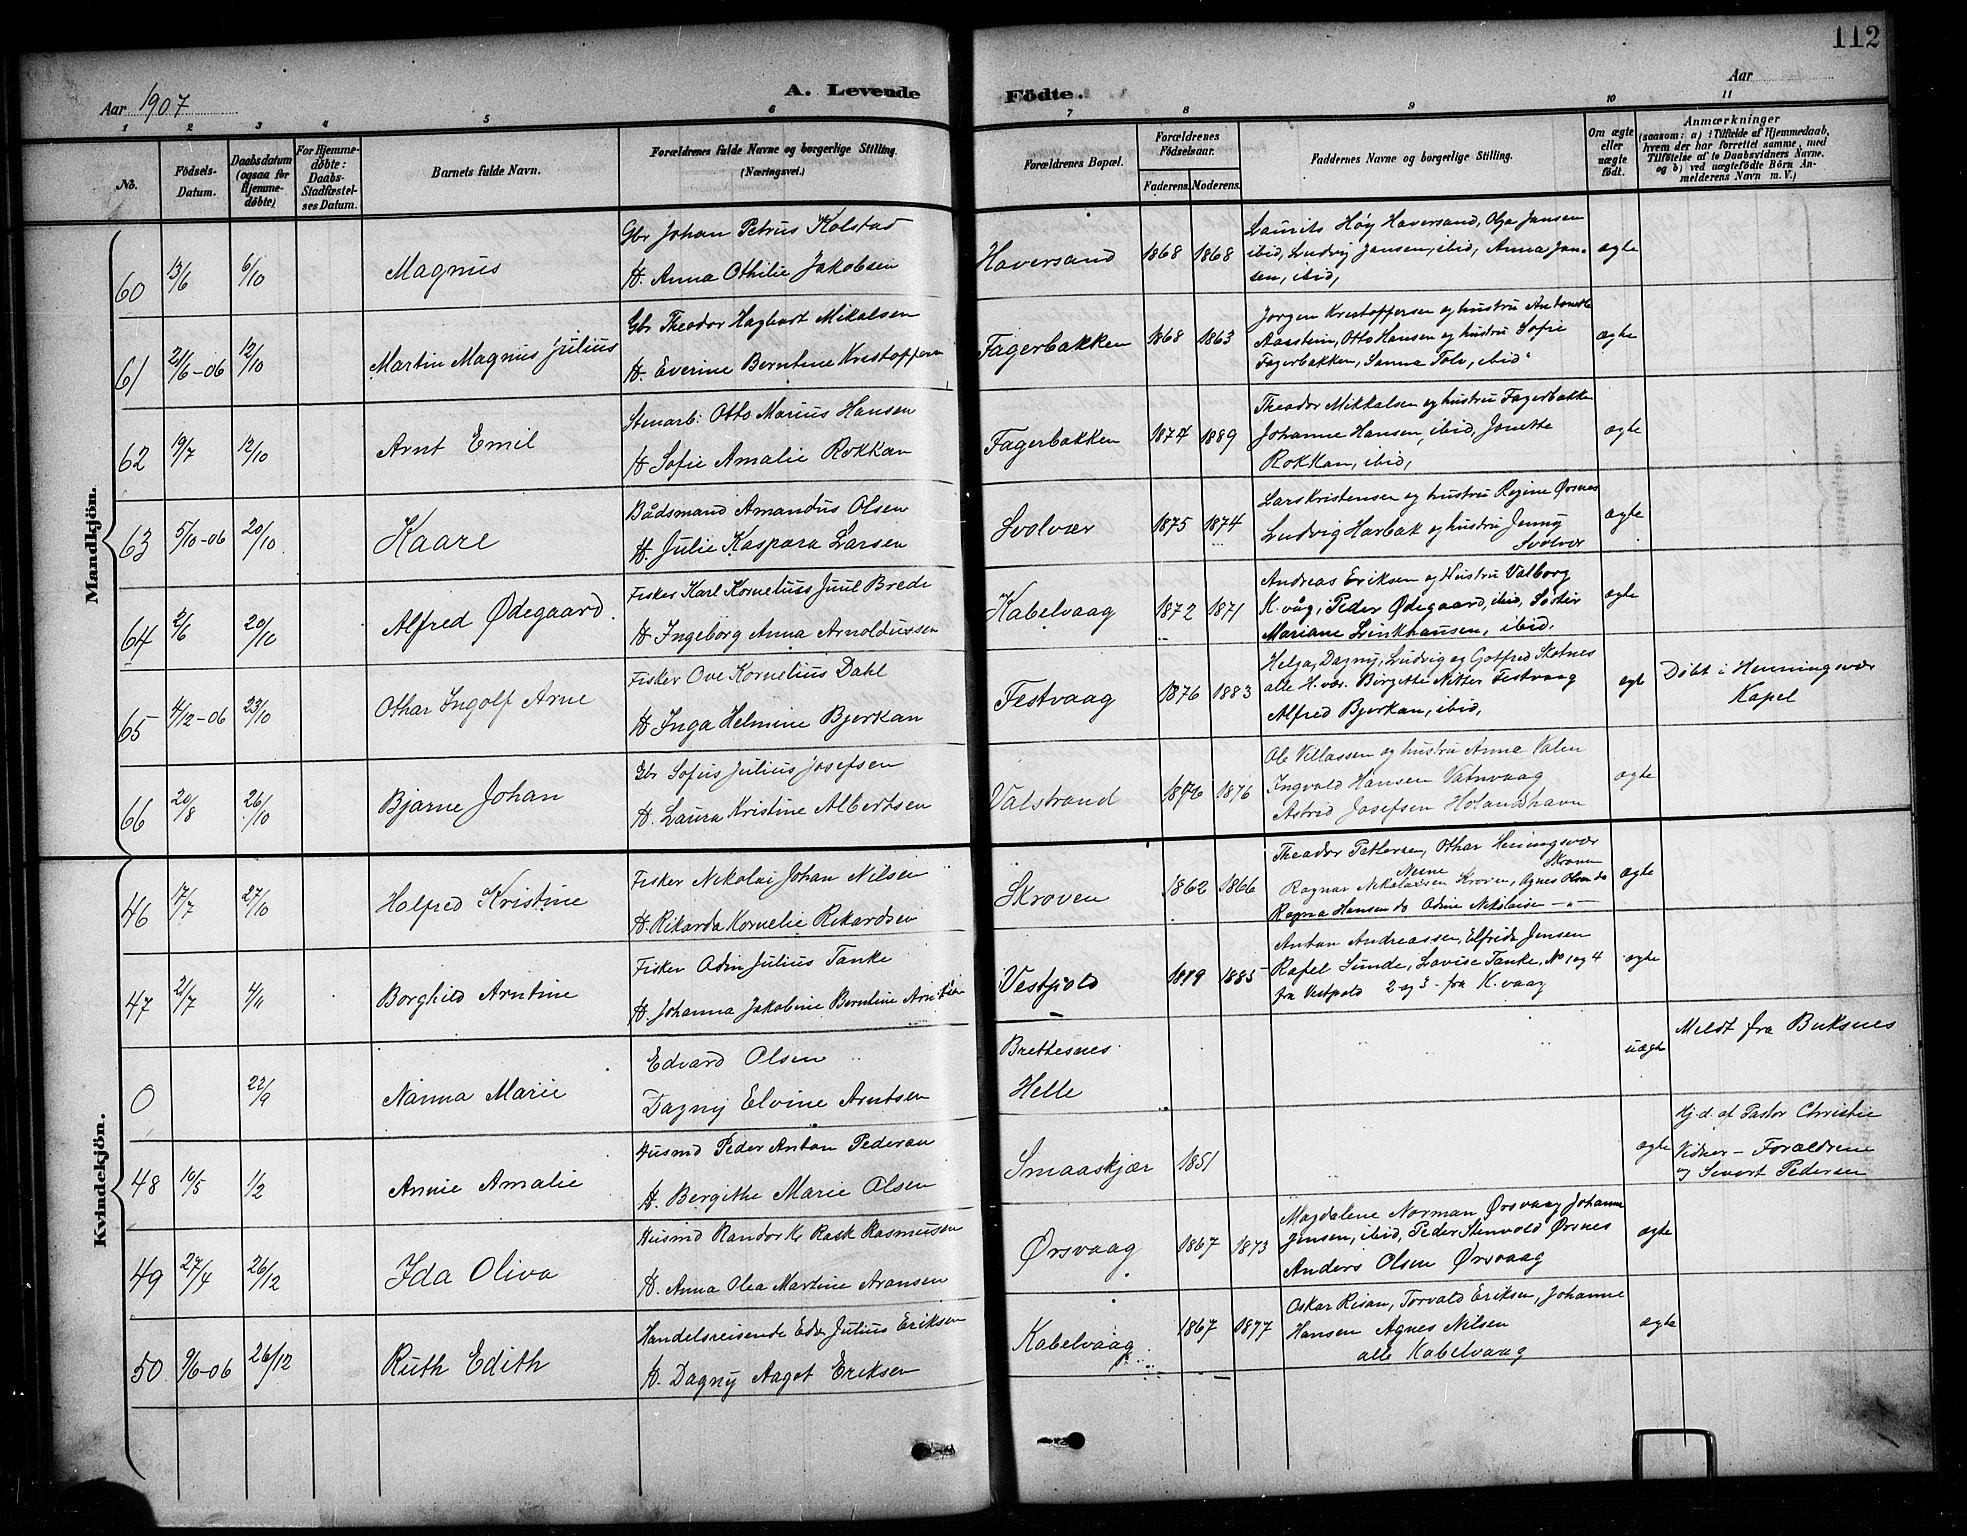 112
Aar 1907
A. Levende Födte.
Aar
1 2 3 4 5 6 7 8 9 10 11
No.
Födsels-Datum.
Daabsdatum (ogsaa for Hjemme-döbte)
For Hjemme-döbte: Daabs-Stadfæstel-ses Datum.
Barnets fulde Navn.
Forældrenes fulde Navne og borgerlige Stilling. (Næringsvei.)
Forældrenes Bopæl.
Forældrenes Födselsaar.
Faderens. Moderens.
Faddernes Navne og borgerlige Stilling.
Om ægte eller uægte födt.
Anmærkninger
(saasom: a) i Tilfælde af Hjemmedaab, hvem der har forrettet samme, med Tilföielse af to Daabsvidners Navne, og b) ved uægtefödte Börn An-melderens Navn m. V.)
Mandkjön.
60 13/6 6/10 Magnus
Gbr Johan Petrus Kolstad
H. Anna Othilie Jakobsen
Haversand 1868 1868
Laurits Høy Haversand, Olga Jansen
ibid, Ludvig Jansen, ibid, Anna Jan-
sen, ibid,
ægte
61 21/6-06 12/10 Martin Magnus Julius
Gbr Theodor Hagbart Mikalsen
H. Everine Berntine Kristoffersen
Fagerbakken 1868 1863
Jørgen Kristoffersen og hustru Antonette
Aarstein, Otto Hansen og hustru Sofie
Fagerbakken, Sanna Tolv, ibid
ægte
62 19/7 12/10 Arnt Emil
Stenarb: Otto Marius Hansen
H Sofie Amalie Rokkan
Fagerbakken 1874 1889
Theodor Mikkalsen og hustru Fagerbakken
Johanne Hansen, ibid, Jonette
Rokkan, ibid,
ægte
63 5/10-06 20/10 Kaare
Bådsmand Amandus Olsen
H. Julie Kaspara Larsen
Svolvær 1875 1874
Lars Kristensen og hustru Regine Ørsnes
Ludvig Harbak og hustru Jenny
Svolvær
ægte
64 2/6 20/10 Alfred Ødegaard.
Fisker Karl Kornelius Juul Brede
H Ingeborg Anna Arnoldussen
Kabelvaag 1872 1871
Andreas Eriksen og Hustru Valborg
K.våg, Peder Ødegaard, ibid, Søster
Mariane Linkhausen, ibid.
ægte
65 4/12-06 23/10 Othar Ingolf Arne
Fisker Ove Kornelius Dahl
H Inga Helmine Bjerkan
Festvaag 1876 1883
Helga, Dagny, Ludvig og Gotfred Skotnes
alle H.vær. Birgitte Nitter Festvaag
Alfred Bjerkan, ibid,
ægt
Døbt i Henningsvær
Kapel
66 20/8 26/10 Bjarne Johan
Gbr Sofus Julius Josefsen
H. Laura Kristine Albertsen
Valstrand 1876 1876
Ole Villassen og hustru Anna Valen
Ingvald Hansen Vatnvaag
Astrid Josefsen Holandshavn
ægte
Kvindekjön.
46 17/7 27/10 Halfred Kristine
Fisker Nikolai Johan Nilsen
H. Rikarda Kornelie Rikardsen
Skroven 1862 1866
Theodor Pettersen, Othar Heningsvær
Skroven
Ragnar Nikolaisen Kroven, Agnes Olsen do
Ragna Hansen do Odine Nikolaisen — " —
ægte
47 21/7 4/11 Borghild Arntine
Fisker Odin Julius Tanke
H. Johanna Jakobine Berntine
Vestpold 1885
Anton Andreassen, Elfrida Jensen
Rafel Sunde, Lovise Tanke, No 1 og 4
fra Vestpold 2 og 3 - fra K. vaag
ægte
0 22/9 Nanna Marie
Edvard Olsen
Dagny Elvine Arntsen
Brettesnes
Helle
uægte
Meldt fra Buksnes
48 10/5 1/2 Annie Amalie
Husmd Peder Anton Pedersen
H. Bergithe Marie Olsen
Smaaskjær 1851
ægte
Hj.d. af Pastor Christie
Vidner - Forældrene
og Sivert Pedersen
49 27/4 26/12 Ida Oliva
Husmd Randor K. Rask Rasmussen
H. Anna Olea Martine Aransen
Ørsvaag 1867 1873
Magdalene Norman Ørsvaag Johanne
Jensen, ibid, Peder Stenvold Ørsnes
Anders Olsen Ørsvaag
ægte
50 9/6-06 26/12 Ruth Edith
Handelsreisende Edv Julius Eriksen
H. Dagny Aagot Eriksen
Kabelvaag 1867 1877
Oskar Risan, Torvald Eriksen, Johanne
Hansen Agnes Nilsen
alle Kabelvaag
ægte